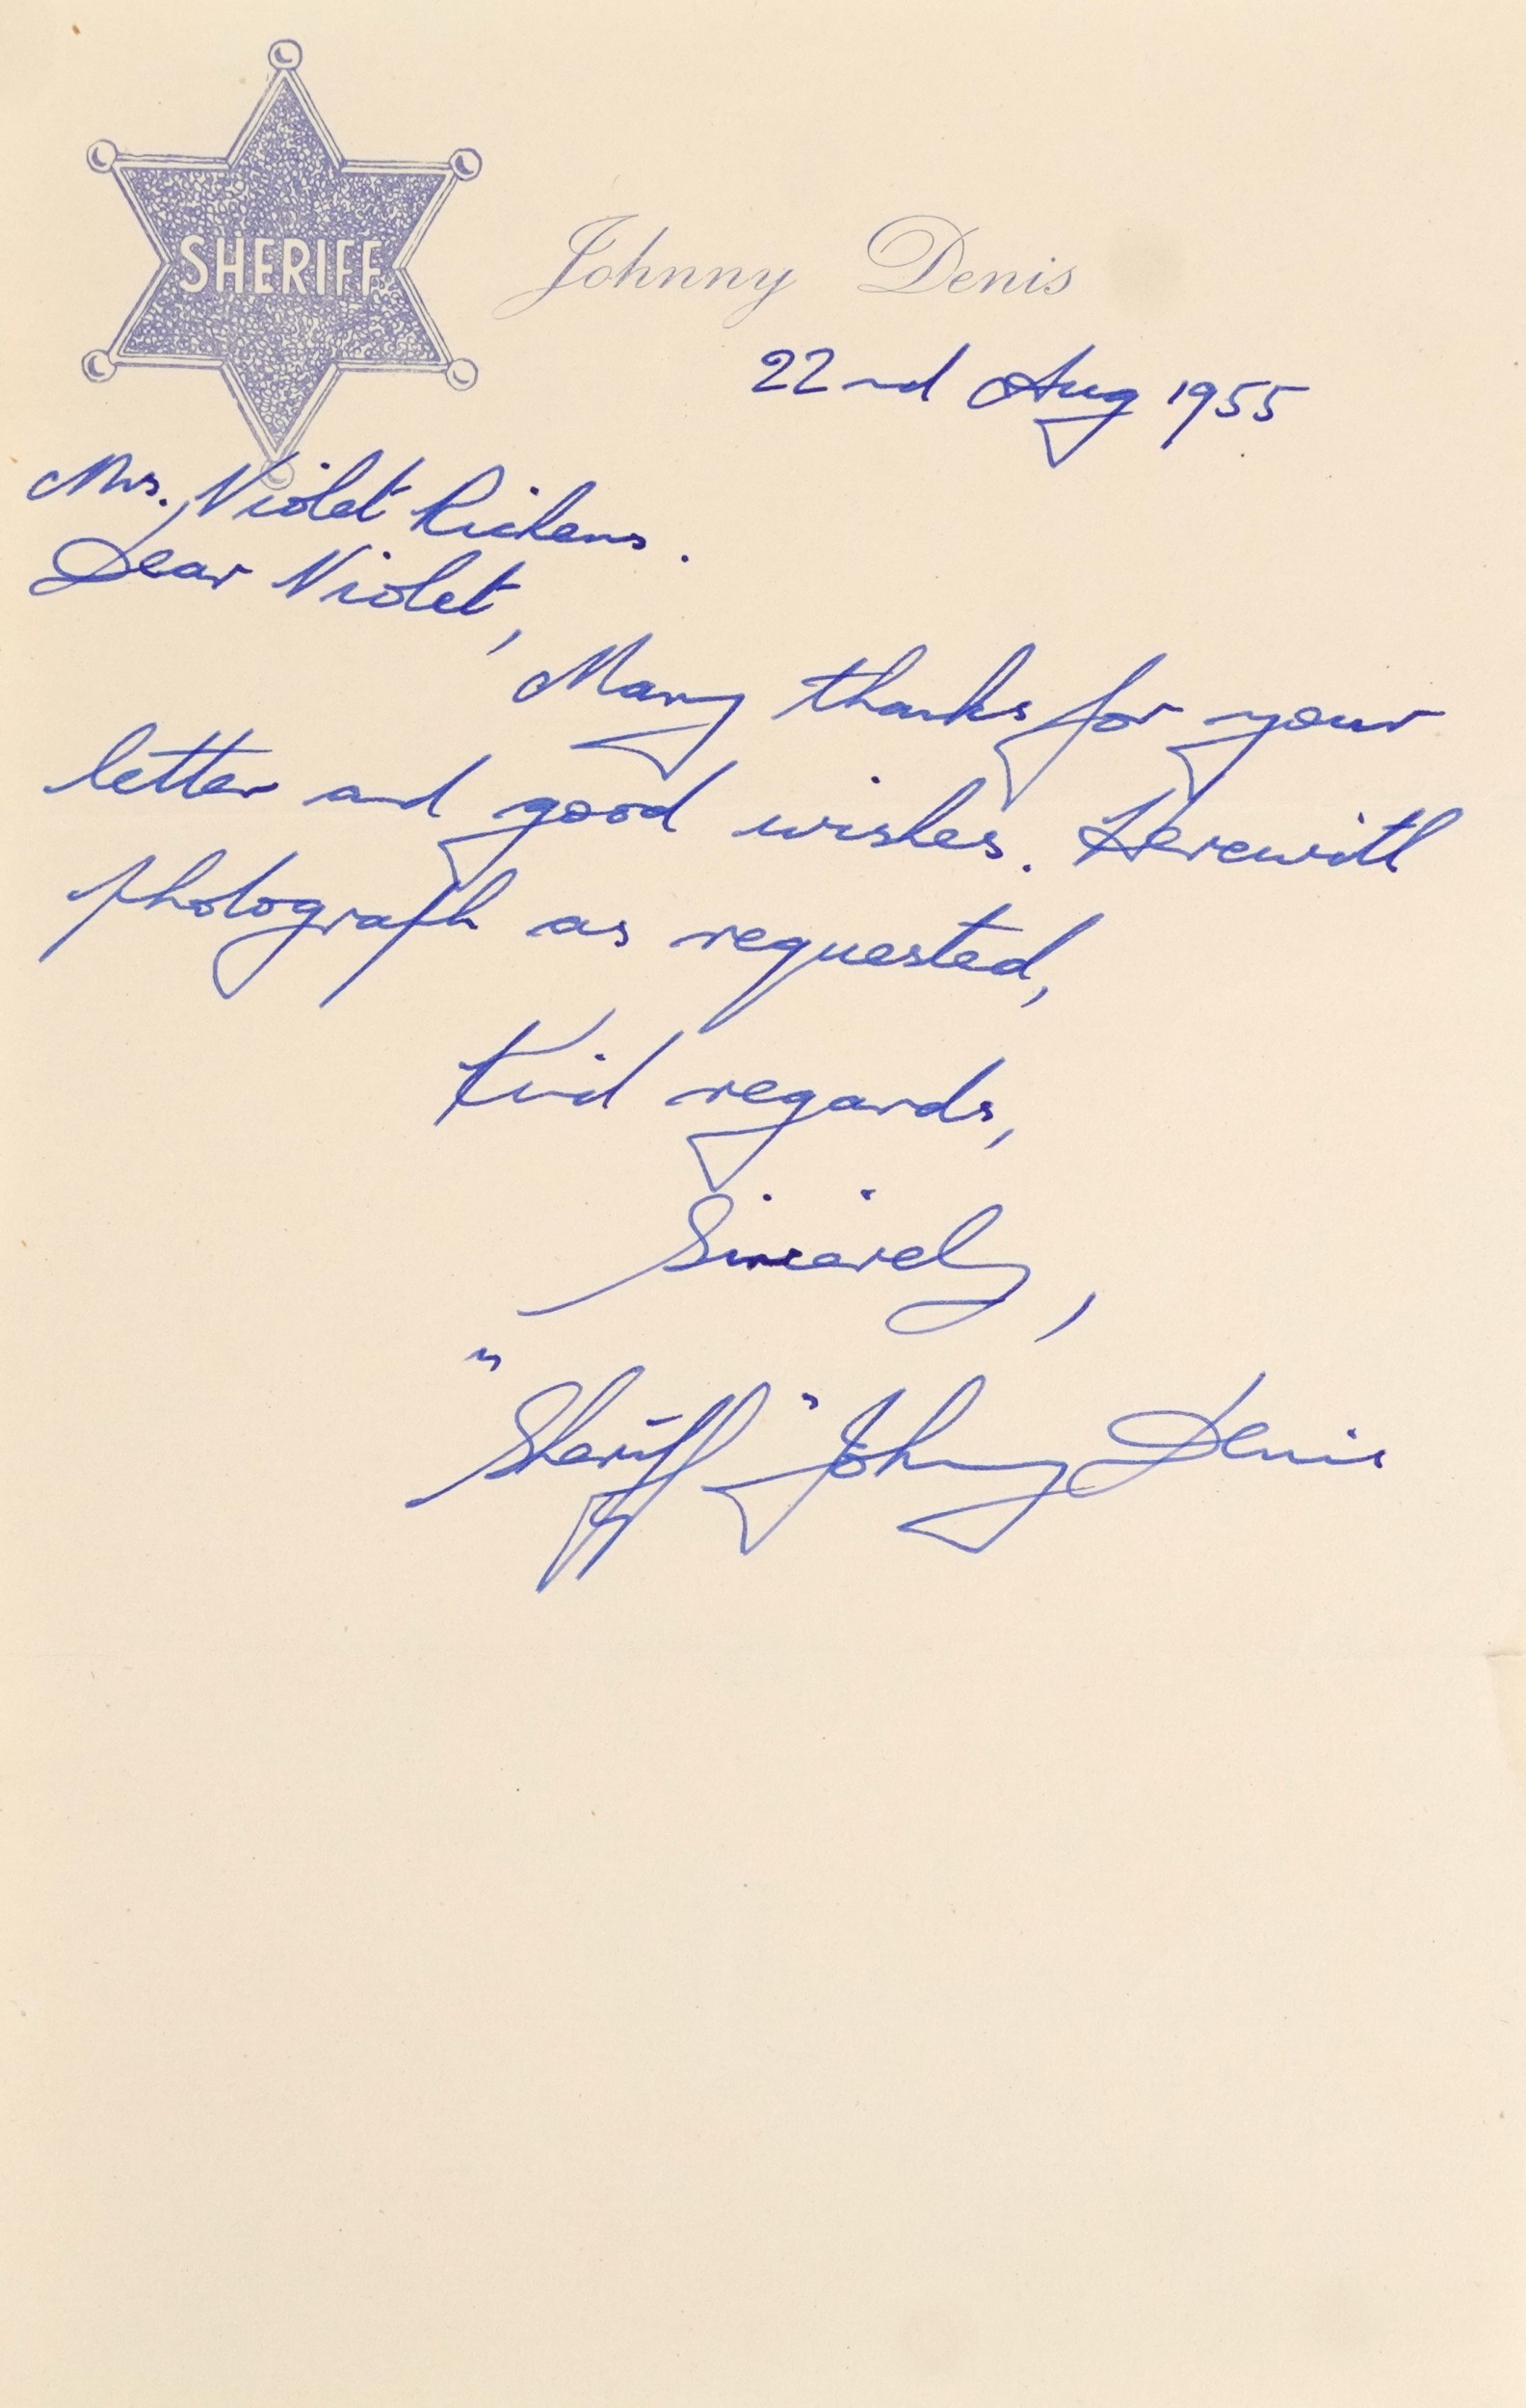 SHERIFF
Johnny Denis
22nd Aug 1955
Mrs. Violet
Dear Violet,
Many thanks for your
letter and good wishes. Herewith
photograph as requested,
Kind regards,
Sincerely,
"Sheriff" Johnny Denis